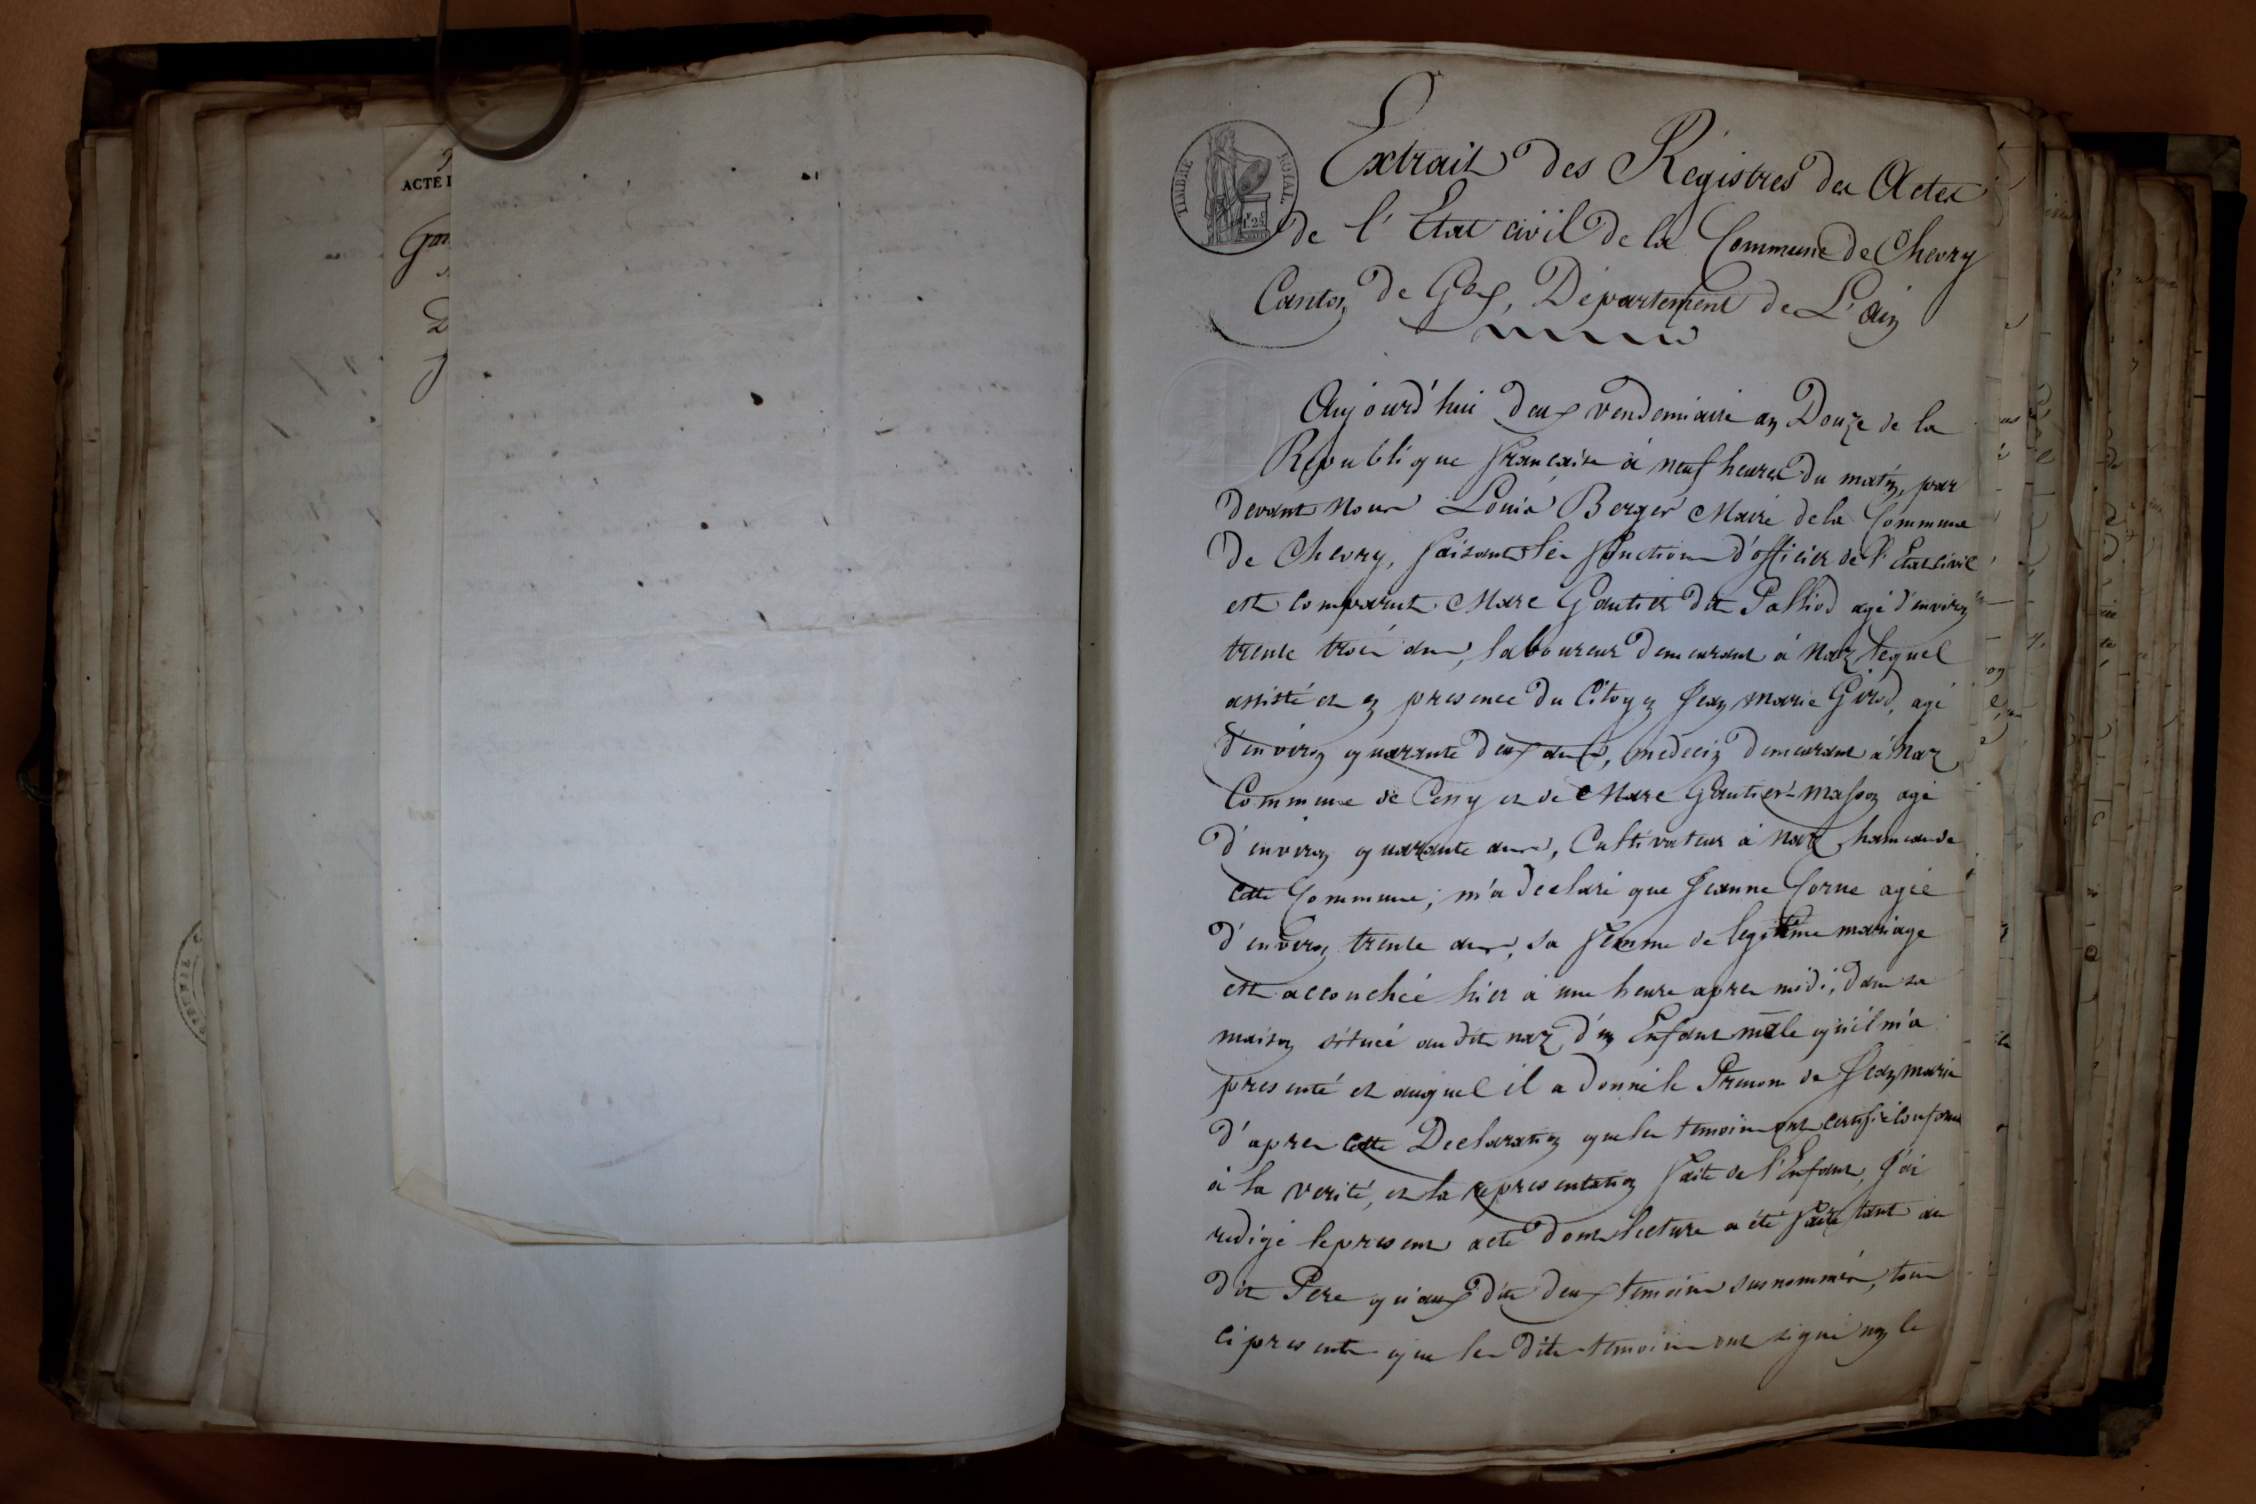 ACTE
TIMBRE ROYAL
1.25
Extrait des Régistres des Actes
de l'Etat civil de la Commune de Chevry
Canton de Gex, Département de L'ain
Aujourd'hui deux vendemiaire an Douze de la
République française à neuf heures du matin, par
devant Nous Louis Berger Maire de la Commune
De Chevry, faisant les fonctions d'officier de l'Etat civil
est comparut Marc Gautier dit Passiod agé d'environ
trente trois ans, laboureur demeurant à Naz lequel
assisté et en presence du Citoyen Jean marie Girod, agé
d'environ quarante deux ans, medecin demeurant à Naz
Commune de Cessy et de Marc Gautier-masson agé
d'environ quarante ans, Cultivateur à Naz hameau de
cette Commune, m'a declaré que Jeanne Corne agée
d'environ trente ans, sa femme de legitime mariage
est accouchée hier à une heure apres midi, dans sa
maison située au dit naz, d'un Enfant mâle qu'il m'a
presenté et auquel il a donné le Prenom de Jean marie
d'apres cette Declaration que les temoins ont certifié conforme
à la verité, et la representation faite de l'Enfant, j'ai
redigé le present acte dont lecture a été faite tant au
dit Pere qu'aux dits deux temoins susnommés, tous
ci presents que les dits temoins ont signé non le